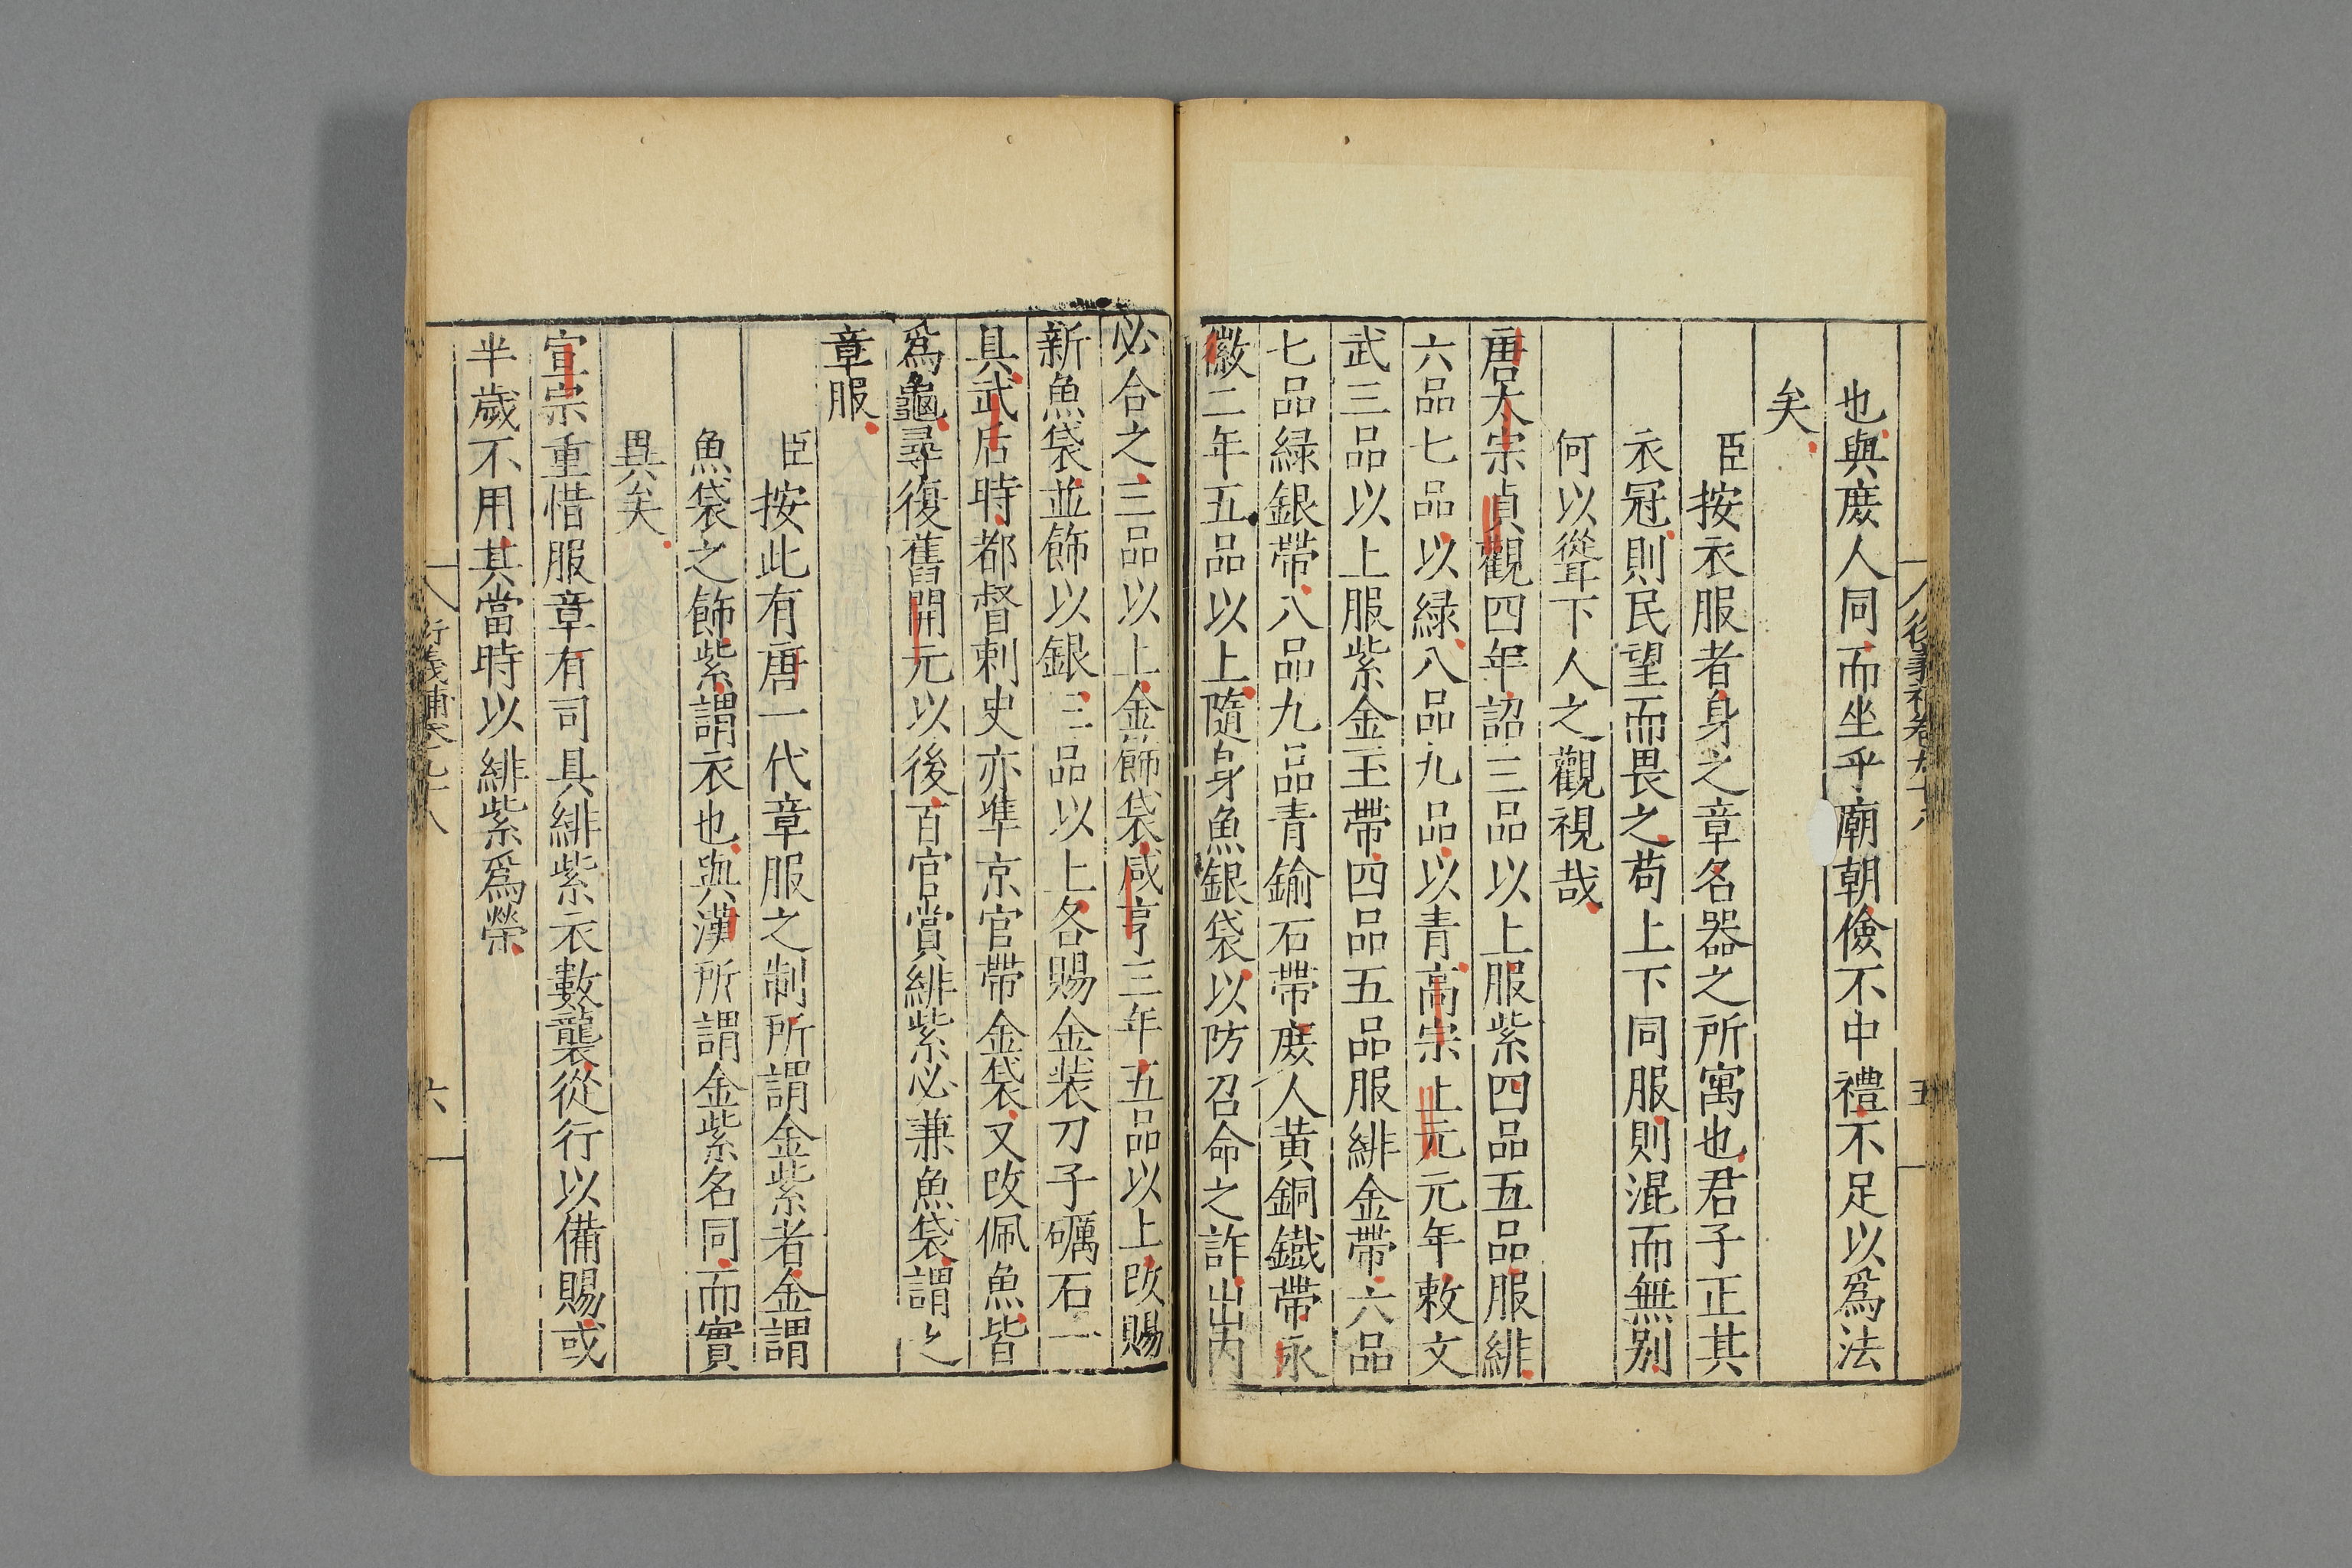 後義補卷九十八 五
也與庻人同而坐乎廟朝儉不中禮不足以爲法
矣
臣按衣服者身之章名器之所寓也君子正其
衣冠則民望而畏之苟上下同服則混而無别
何以聳下人之觀視哉
唐太宗貞觀四年詔三品以上服紫四品五品服緋
六品七品以緑八品九品以青髙宗上元元年敕文
武三品以上服紫金玉帶四品五品服緋金帶六品
七品緑銀帶八品九品青鍮石帶庻人黄銅鐵帶永
徽二年五品以上隨身魚銀袋以防召命之詐出内
必合之三品以上金餙袋咸亨三年五品以上攺賜
新魚袋並飾以銀三品以上各賜金装刀子礪石一
具武后時都督刺史亦凖京官帶金袋又攺佩魚皆
爲龜尋復舊開元以後百官賞緋紫必兼魚袋謂之
章服
臣按此有唐一代章服之制所謂金紫者金謂
魚袋之飾紫謂衣也與漢所謂金紫名同而實
異矣
宣宗重惜服章有司具緋紫衣數襲從行以備賜或
半歲不用其當時以緋紫爲榮
衍義補卷九十八 六